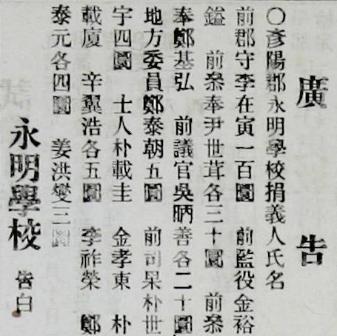 廣告
○彦陽郡永明學校捐義人氏名
前郡守李在寅一百圜 前監役金裕
鎰 前叅奉尹世茸各三十圜 前叅
奉鄭基弘 前議官吳昞善各二十圜
地方委員鄭泰朝五圜 前司果朴世
宇四圜 士人朴載圭 金孝東 朴
載厦 辛翼浩各五圜 李祚榮 鄭
泰元各四圜 姜洪燮三圜
永明學校 告白